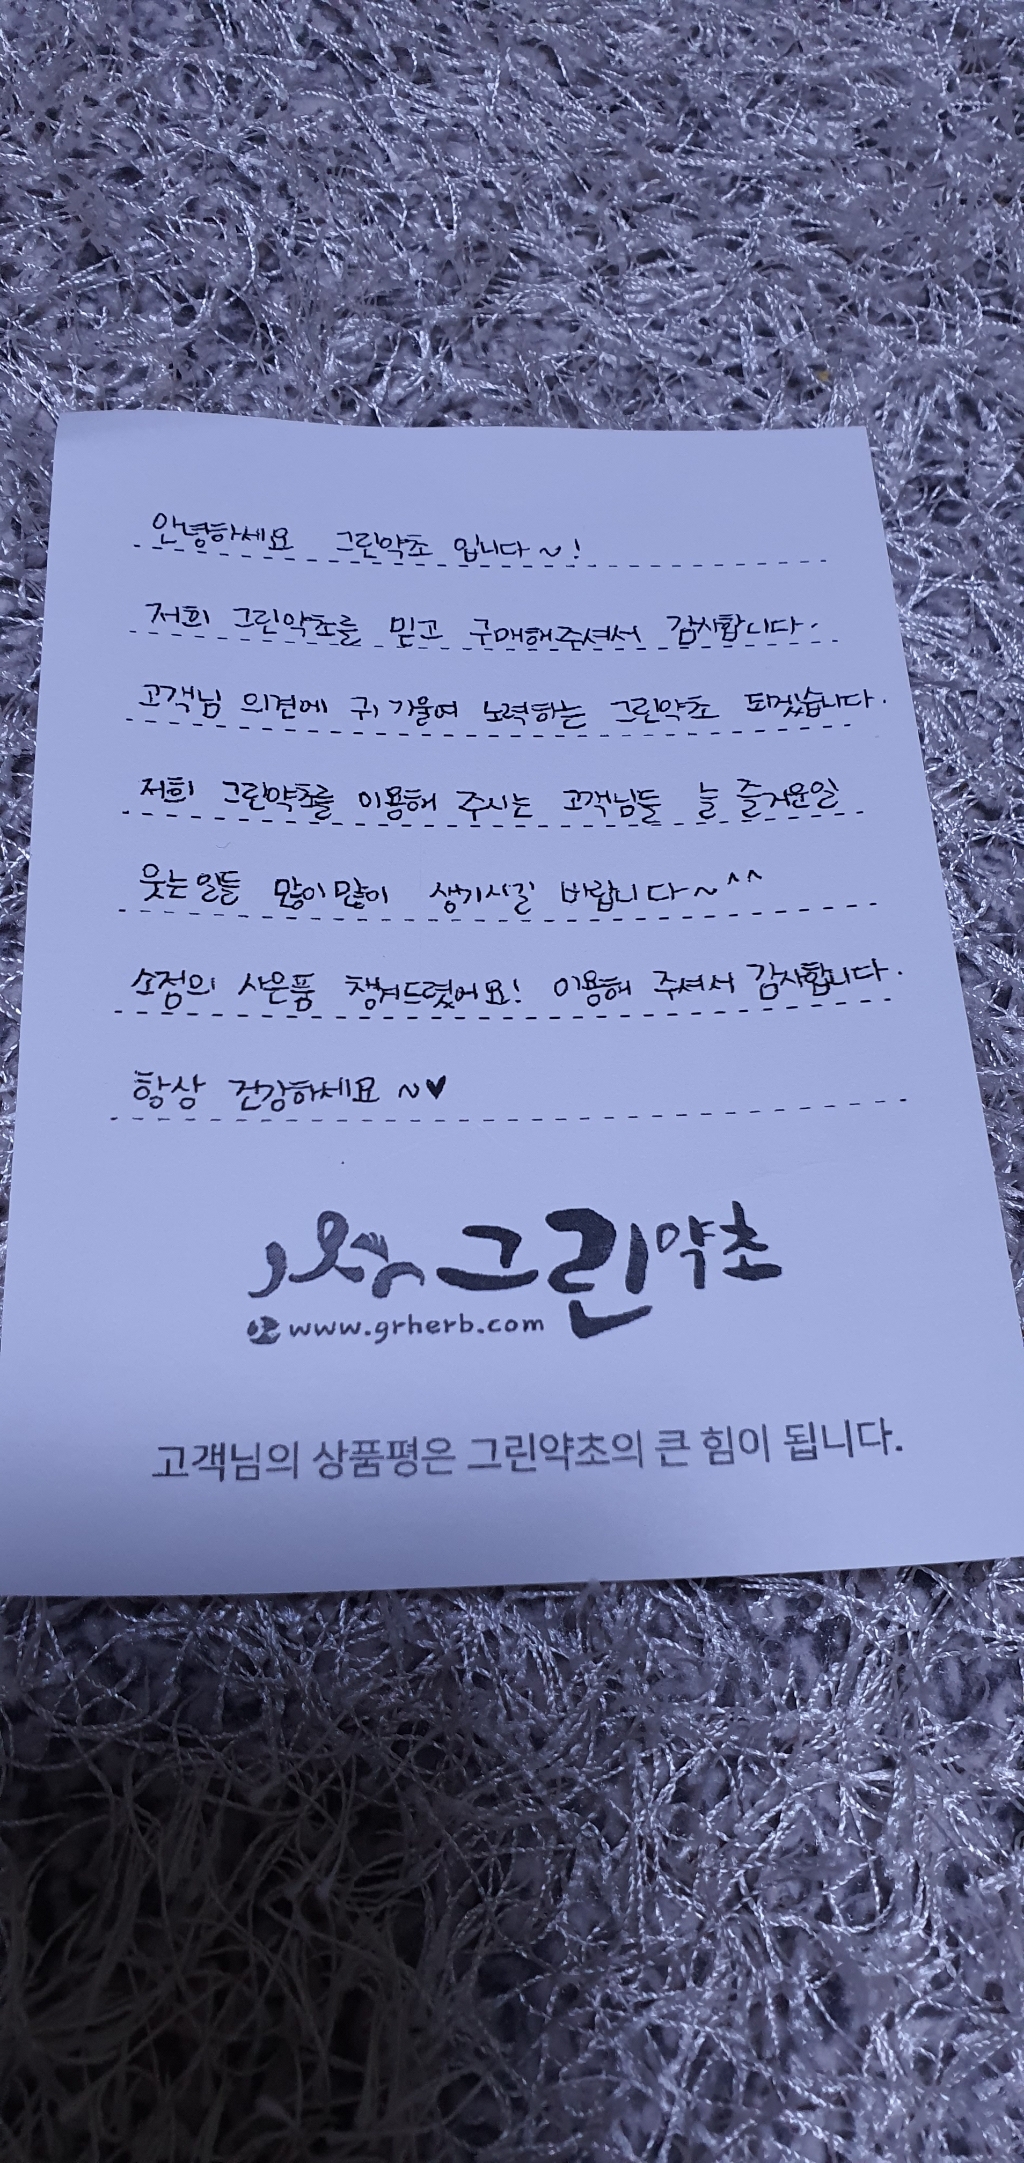 안녕하세요 그린약초 입니다~!
저희 그린약초를 믿고 구매해주셔서 감사합니다.
고객님 의견에 귀 기울여 노력하는 그린약초 되겠습니다.
저희 그린약초를 이용해 주시는 고객님들 늘 즐거운일
웃는일들 많이많이 생기시길 바랍니다~^^
소정의 사은품 챙겨드렸어요! 이용해 주셔서 감사합니다.
항상 건강하세요 ~♥
그린약초
www.grherb.com
고객님의 상품평은 그린약초의 큰 힘이 됩니다.